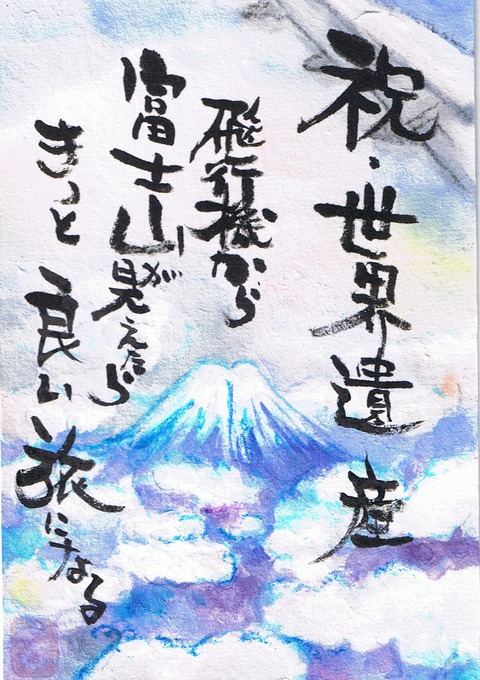 祝・世界遺産
飛行機から
富士山が見えたら
きっと良い旅になる